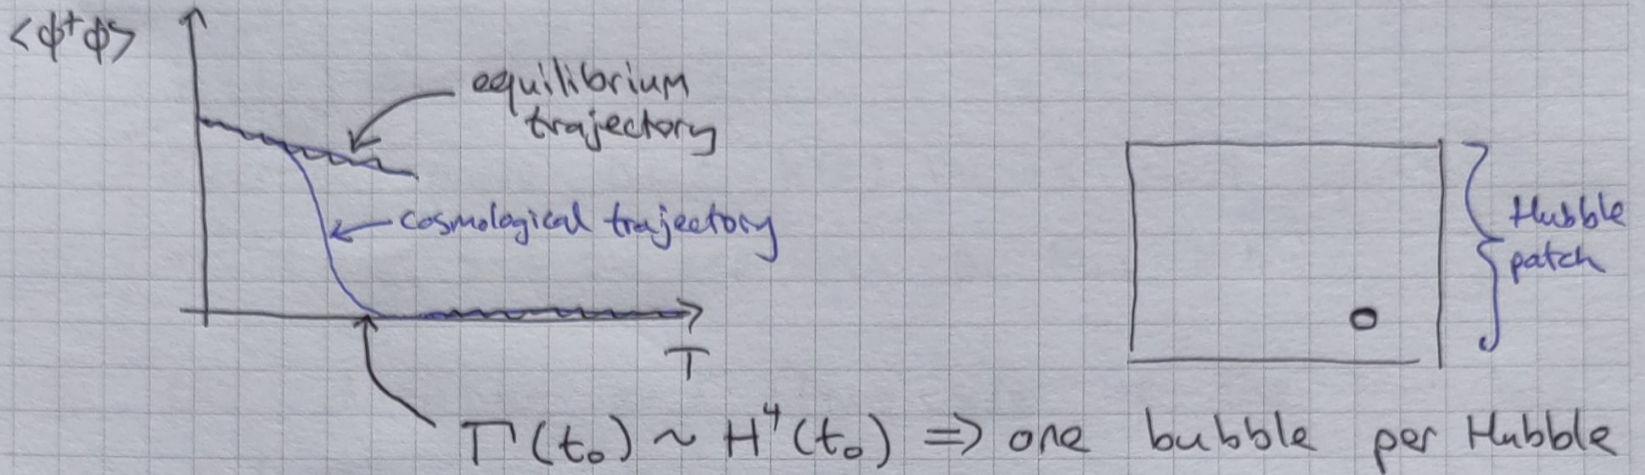 <ϕ†ϕ>
equilibrium
trajectory
cosmological trajectory
T
Hubble
patch
Γ(t₀) ~ H⁴(t₀) => one bubble per Hubble